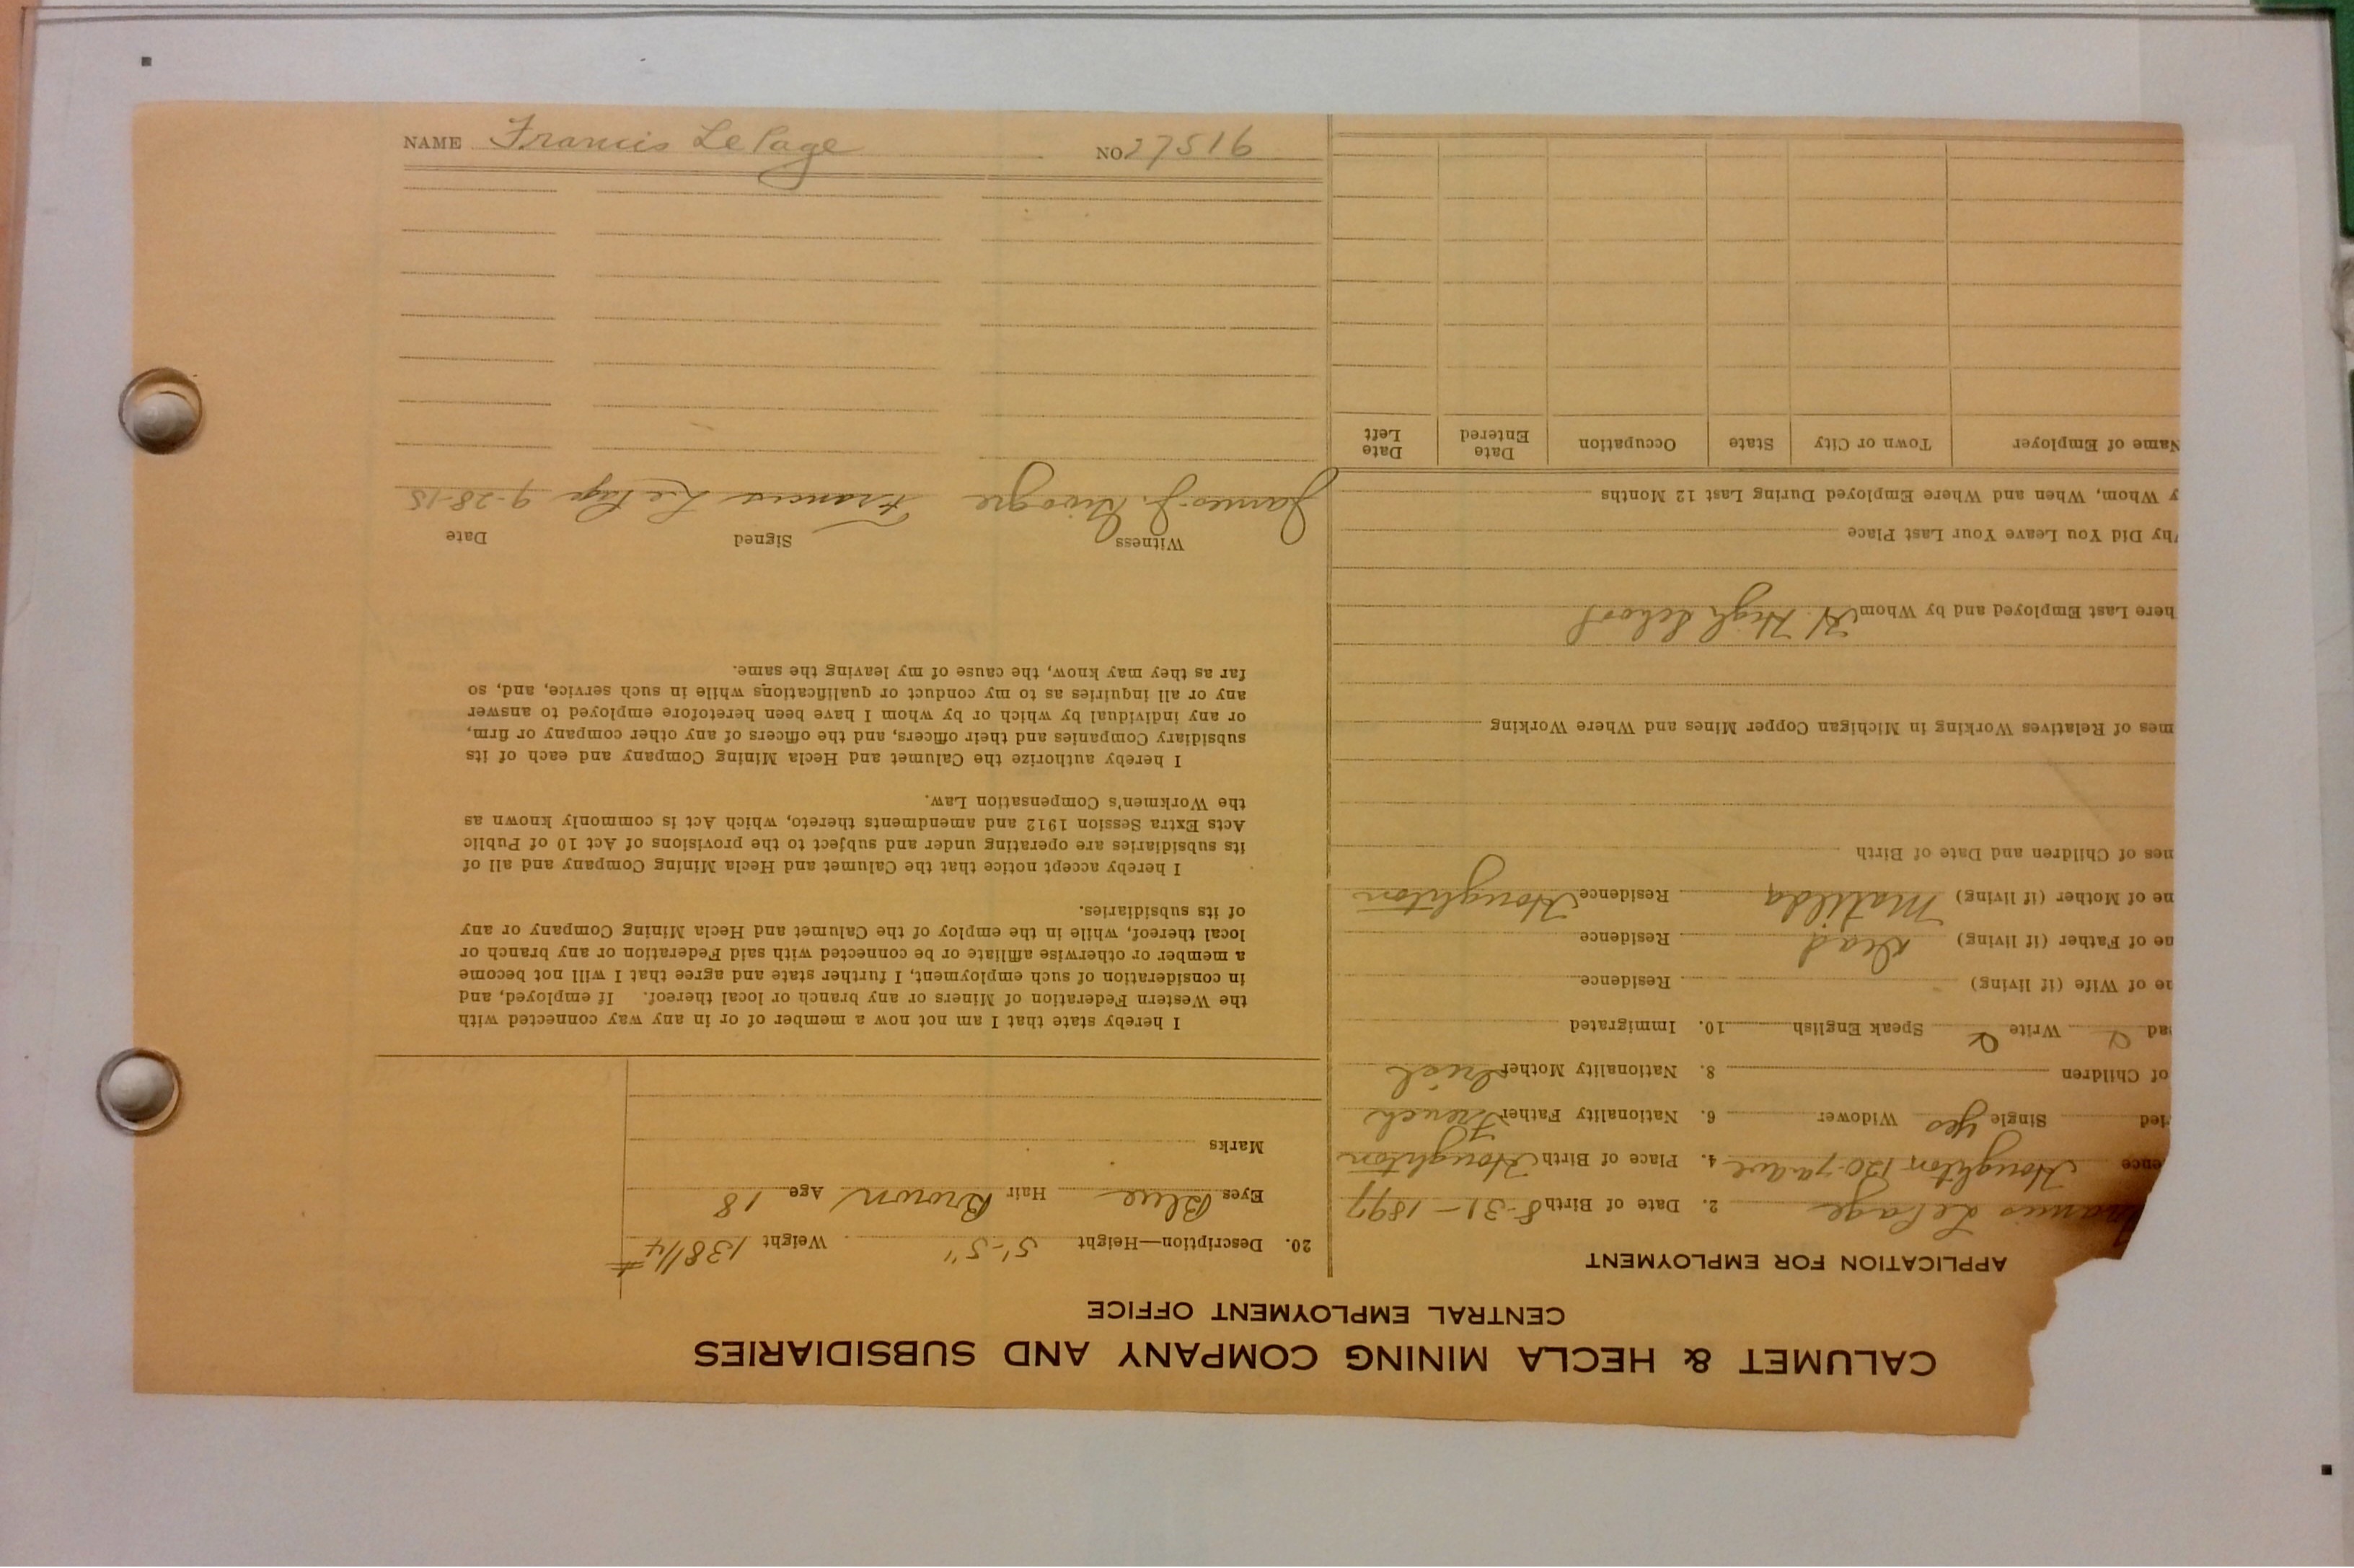 NAME Francis LePage NO. 27516
CALUMET & HECLA MINING COMPANY AND SUBSIDIARIES
CENTRAL EMPLOYMENT OFFICE
APPLICATION FOR EMPLOYMENT
Francis LePage 2. Date of Birth 8-31-1897
ence Houghton 120 4. Place of Birth Houghton
ied Single yes Widower 6. Nationality Father French
of Children 8. Nationality Mother
ad Write Speak English 10. Immigrated
ne of Wife (if living) Residence
ne of Father (if living) Dead Residence
ne of Mother (if living) Matilda Residence Houghton
nes of Children and Date of Birth
mes of Relatives Working in Michigan Copper Mines and Where Working
here Last Employed and by Whom H. High School
hy Did You Leave Your Last Place
y Whom, When and Where Employed During Last 12 Months
Name of Employer Town or City State Occupation Date Entered Date Left
20. Description—Height 5'-5" Weight 138 1/4 #
Eyes Blue Hair Brown Age 18
Marks
I hereby state that I am not now a member of or in any way connected with
the Western Federation of Miners or any branch or local thereof. If employed, and
in consideration of such employment, I further state and agree that I will not become
a member or otherwise affiliate or be connected with said Federation or any branch or
local thereof, while in the employ of the Calumet and Hecla Mining Company or any
of its subsidiaries.
I hereby accept notice that the Calumet and Hecla Mining Company and all of
its subsidiaries are operating under and subject to the provisions of Act 10 of Public
Acts Extra Session 1912 and amendments thereto, which Act is commonly known as
the Workmen's Compensation Law.
I hereby authorize the Calumet and Hecla Mining Company and each of its
subsidiary Companies and their officers, and the officers of any other company or firm,
or any individual by which or by whom I have been heretofore employed to answer
any or all inquiries as to my conduct or qualifications while in such service, and, so
far as they may know, the cause of my leaving the same.
Witness Signed Date
James J. Francis Le Page 9-28-15